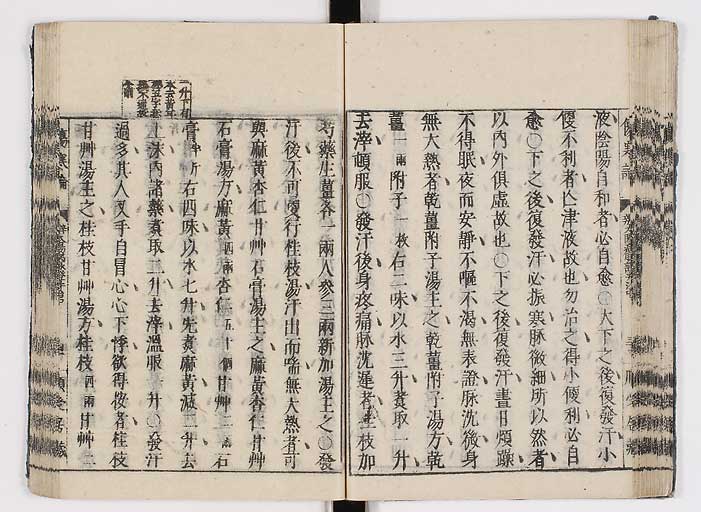 液陰陽自和者必自愈○大下之後復發汗小
便不利者亾津液故也勿治之得小便利必自
愈○下之後復發汗必振寒脉微細所以然者
以内外俱虛故也○下之後復發汗晝日煩躁
不得眠夜而安靜不嘔不渴無表證脉沈微身
無大熱者乾薑附子湯主之乾薑附子湯方乾
薑一兩附子一枚右二味以水三升煑取一升
去滓頓服○發汗後身疼痛脉沈遲者桂枝加
芍藥生薑各一兩人參三兩新加湯主之○發
汗後不可更行桂枝湯汗出而喘無大熱者可
與麻黄杏仁甘艸石膏湯主之麻黄杏仁甘艸
石膏湯方麻黄四兩杏仁五十個甘艸二兩石
膏半斤右四味以水七升先煑麻黄減二升去
上沫内諸藥煑取二升去滓溫服一升○發汗
過多其人叉手自冒心心下悸欲得按者桂枝
甘艸湯主之桂枝甘艸湯方桂枝四兩甘艸二
傷寒論